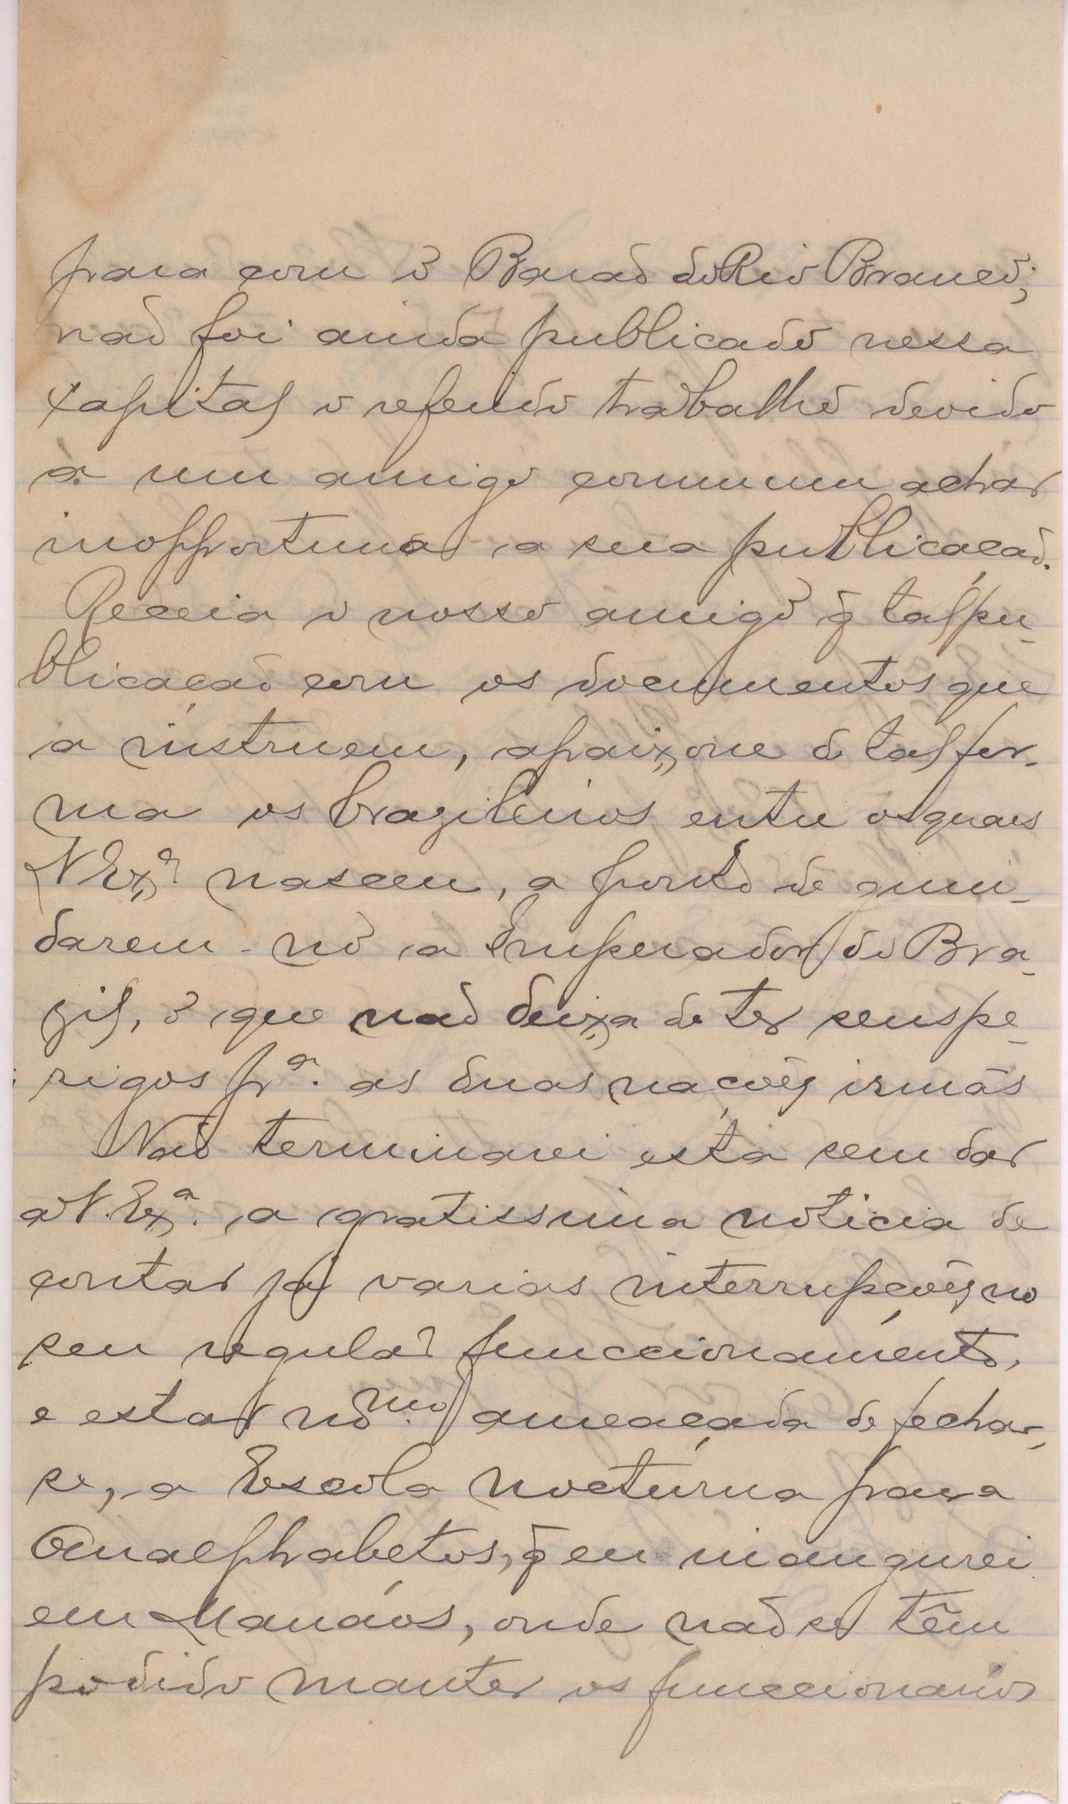 para com o Barão do Rio Branco;
não foi ainda publicado nessa
Capital o referido trabalho devido
a um amigo commum achar
inopportuna a sua publicação.
Receia o nosso amigo q̃ tal pu-
blicação com os documentos que
a instruem, apaixone de tal for-
ma os brazileiros entre os quaes
V Exª. nasceu, a ponto de guin-
darem-no a Imperador do Bra-
zil, o que não deixa de ter seus pe-
rigos pª. as duas nações irmãs
Não terminarei esta sem dar
a V. Exª. a gratissima noticia de
contar já varias interrupções no
seu regular funccionamento,
e estar no mmo ameaçada de fechar-
se, a Escola nocturna para
Analphabetos, q̃ eu inaugurei
em Manáos, onde não se têm
podido manter os funccionarios